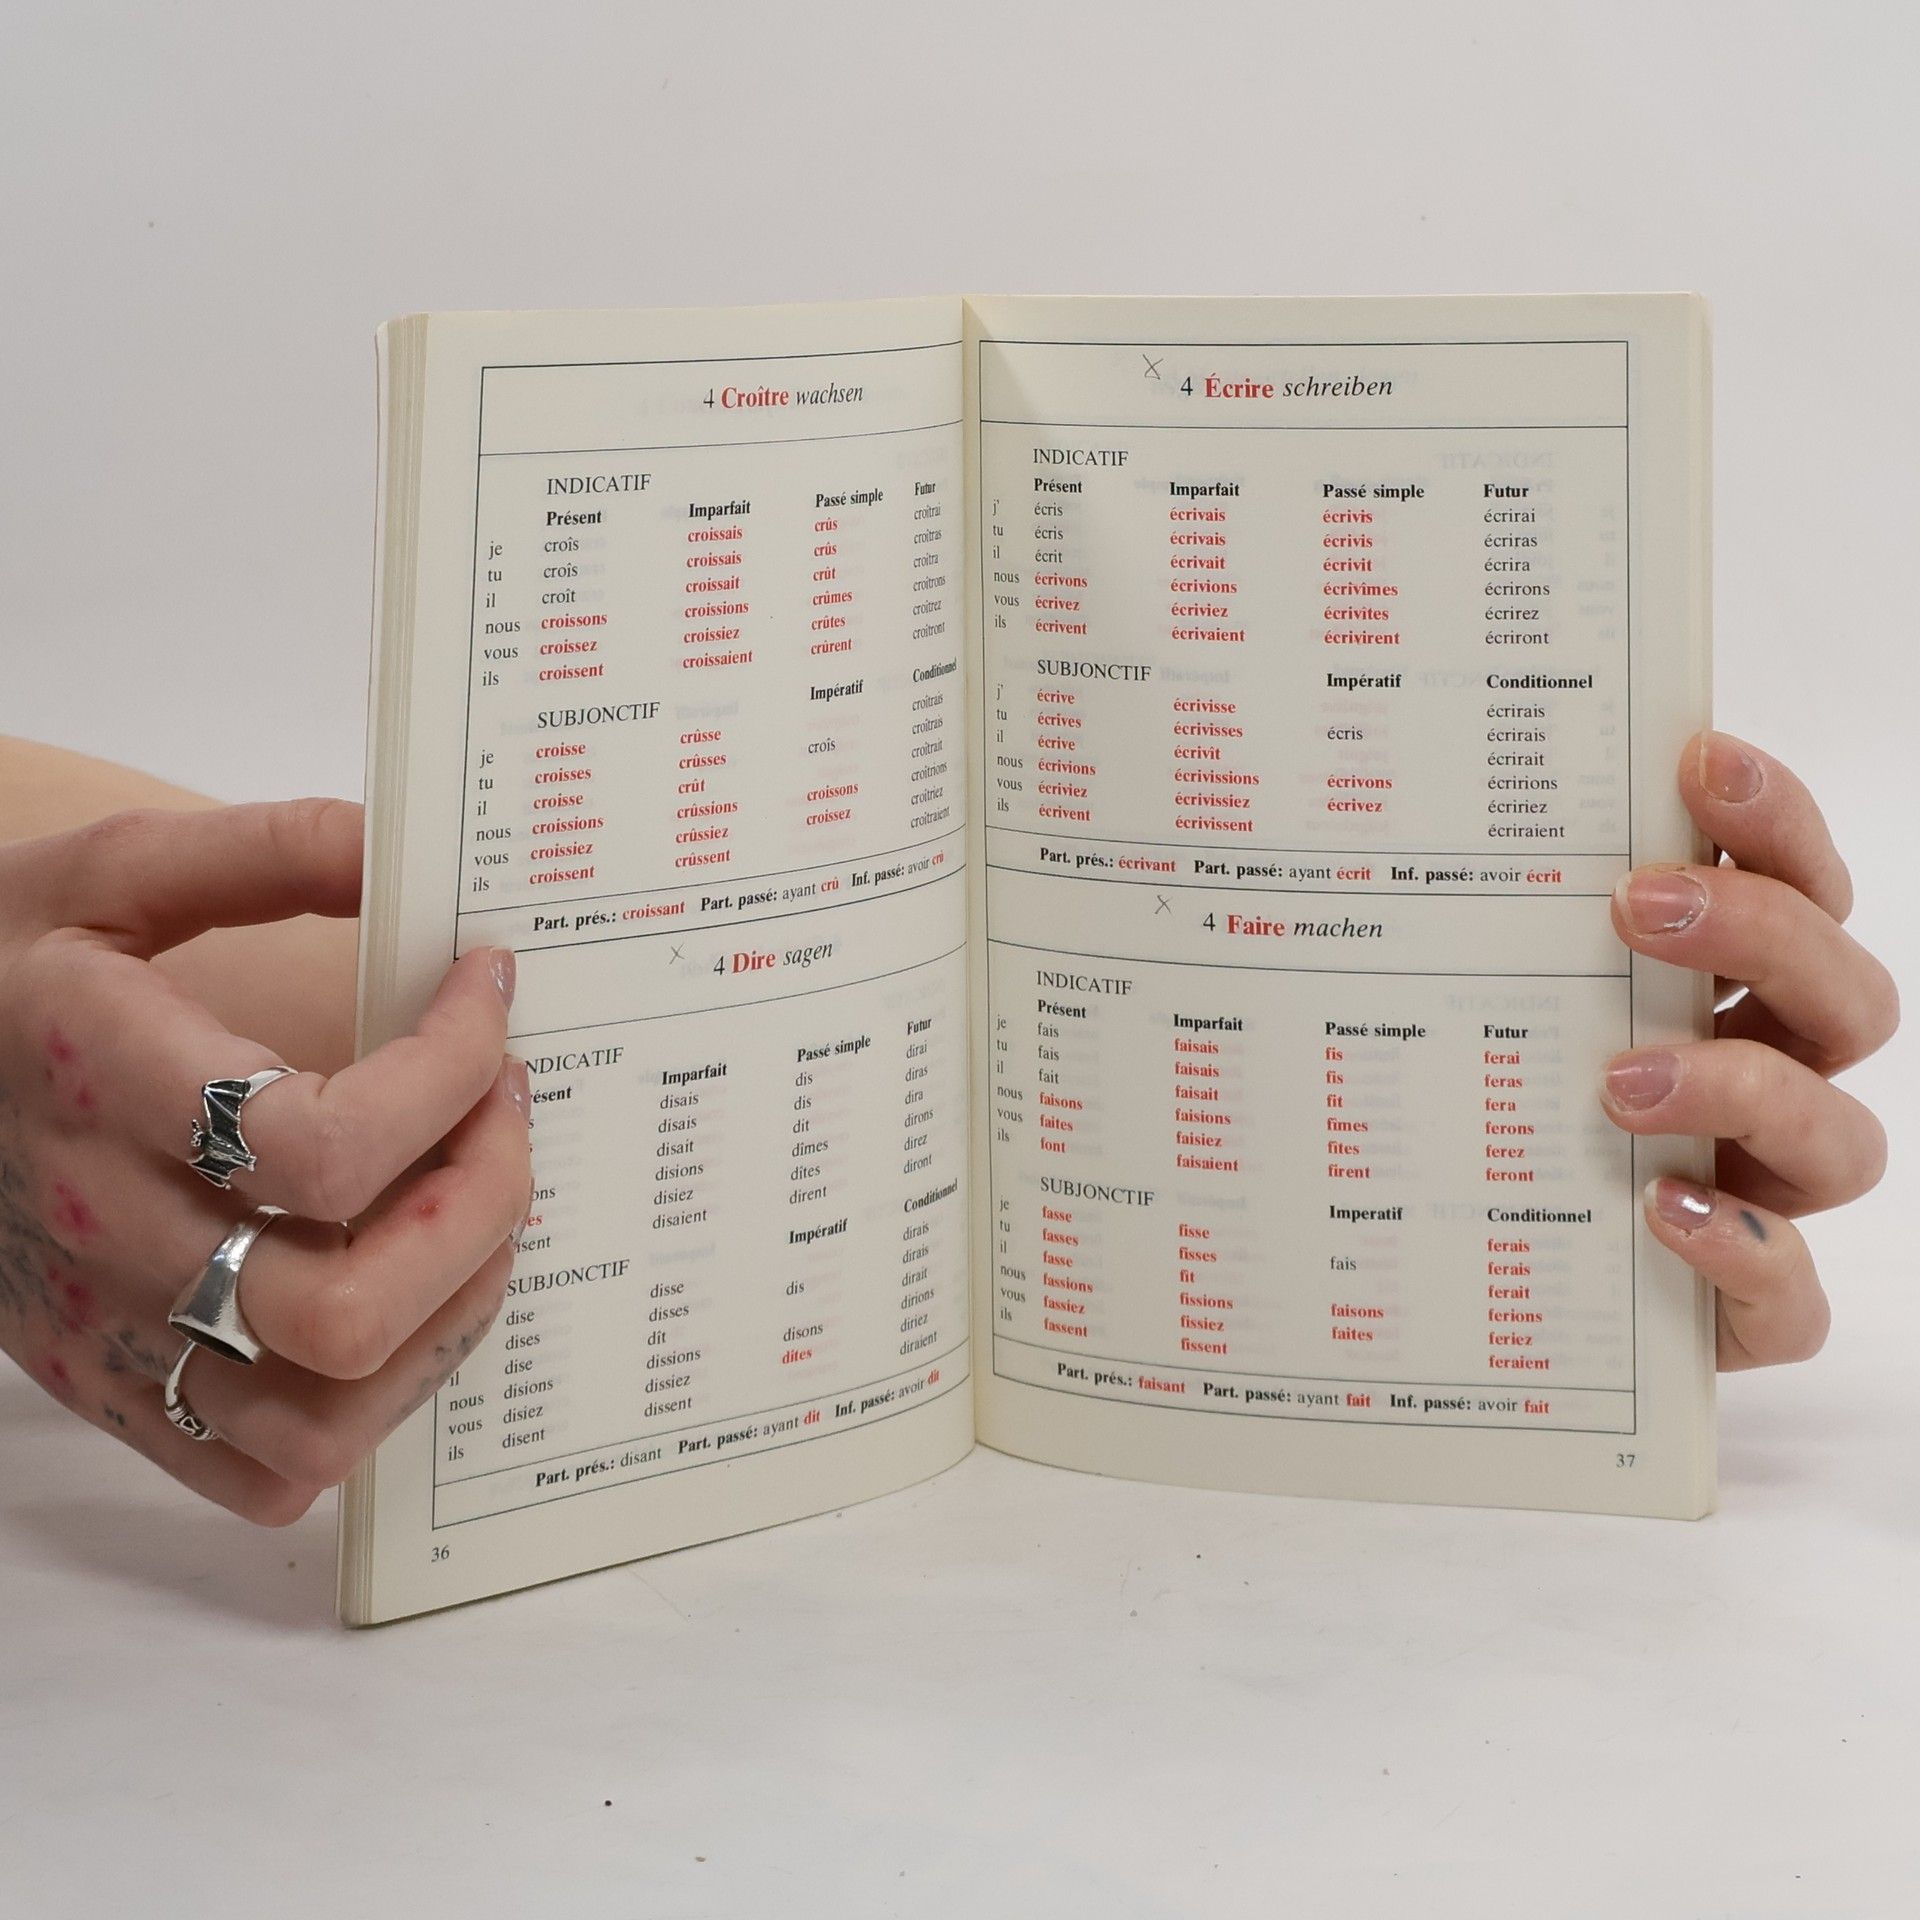 4 Croître wachsen
INDICATIF
Présent Imparfait Passé simple Futur
je croîs croissais crûs croîtrai
tu croîs croissais crûs croîtras
il croît croissait crût croîtra
nous croissons croissions crûmes croîtrons
vous croissez croissiez crûtes croîtrez
ils croissent croissaient crûrent croîtront
SUBJONCTIF Impératif Conditionnel
je croisse crûsse croîtrais
tu croisses crûsses croîs croîtrais
il croisse crût croîtrait
nous croissions crûssions croissons croîtrions
vous croissiez crûssiez croissez croîtriez
ils croissent crûssent croîtraient
Part. prés.: croissant Part. passé: ayant crû Inf. passé: avoir crû
X 4 Dire sagen
NDICATIF
ésent Imparfait Passé simple Futur
s disais dis dirai
s disais dis diras
disait dit dira
ons disions dîmes dirons
es disiez dîtes direz
isent disaient dirent diront
SUBJONCTIF Impératif Conditionnel
dise disse dirais
dises disses dis dirais
il dise dît dirait
nous disions dissions disons dirions
vous disiez dissiez dites diriez
ils disent dissent diraient
Part. prés.: disant Part. passé: ayant dit Inf. passé: avoir dit
36
X 4 Écrire schreiben
INDICATIF
Présent Imparfait Passé simple Futur
j' écris écrivais écrivis écrirai
tu écris écrivais écrivis écriras
il écrit écrivait écrivit écrira
nous écrivons écrivions écrivîmes écrirons
vous écrivez écriviez écrivîtes écrirez
ils écrivent écrivaient écrivirent écriront
SUBJONCTIF Impératif Conditionnel
j' écrive écrivisse écrirais
tu écrives écrivisses écris écrirais
il écrive écrivît écrirait
nous écrivions écrivissions écrivons écririons
vous écriviez écrivissiez écrivez écririez
ils écrivent écrivissent écriraient
Part. prés.: écrivant Part. passé: ayant écrit Inf. passé: avoir écrit
X 4 Faire machen
INDICATIF
Présent Imparfait Passé simple Futur
je fais faisais fis ferai
tu fais faisais fis feras
il fait faisait fit fera
nous faisons faisions fîmes ferons
vous faites faisiez fîtes ferez
ils font faisaient firent feront
SUBJONCTIF Imperatif Conditionnel
je fasse fisse ferais
tu fasses fisses fais ferais
il fasse fît ferait
nous fassions fissions faisons ferions
vous fassiez fissiez faites feriez
ils fassent fissent feraient
Part. prés.: faisant Part. passé: ayant fait Inf. passé: avoir fait
37